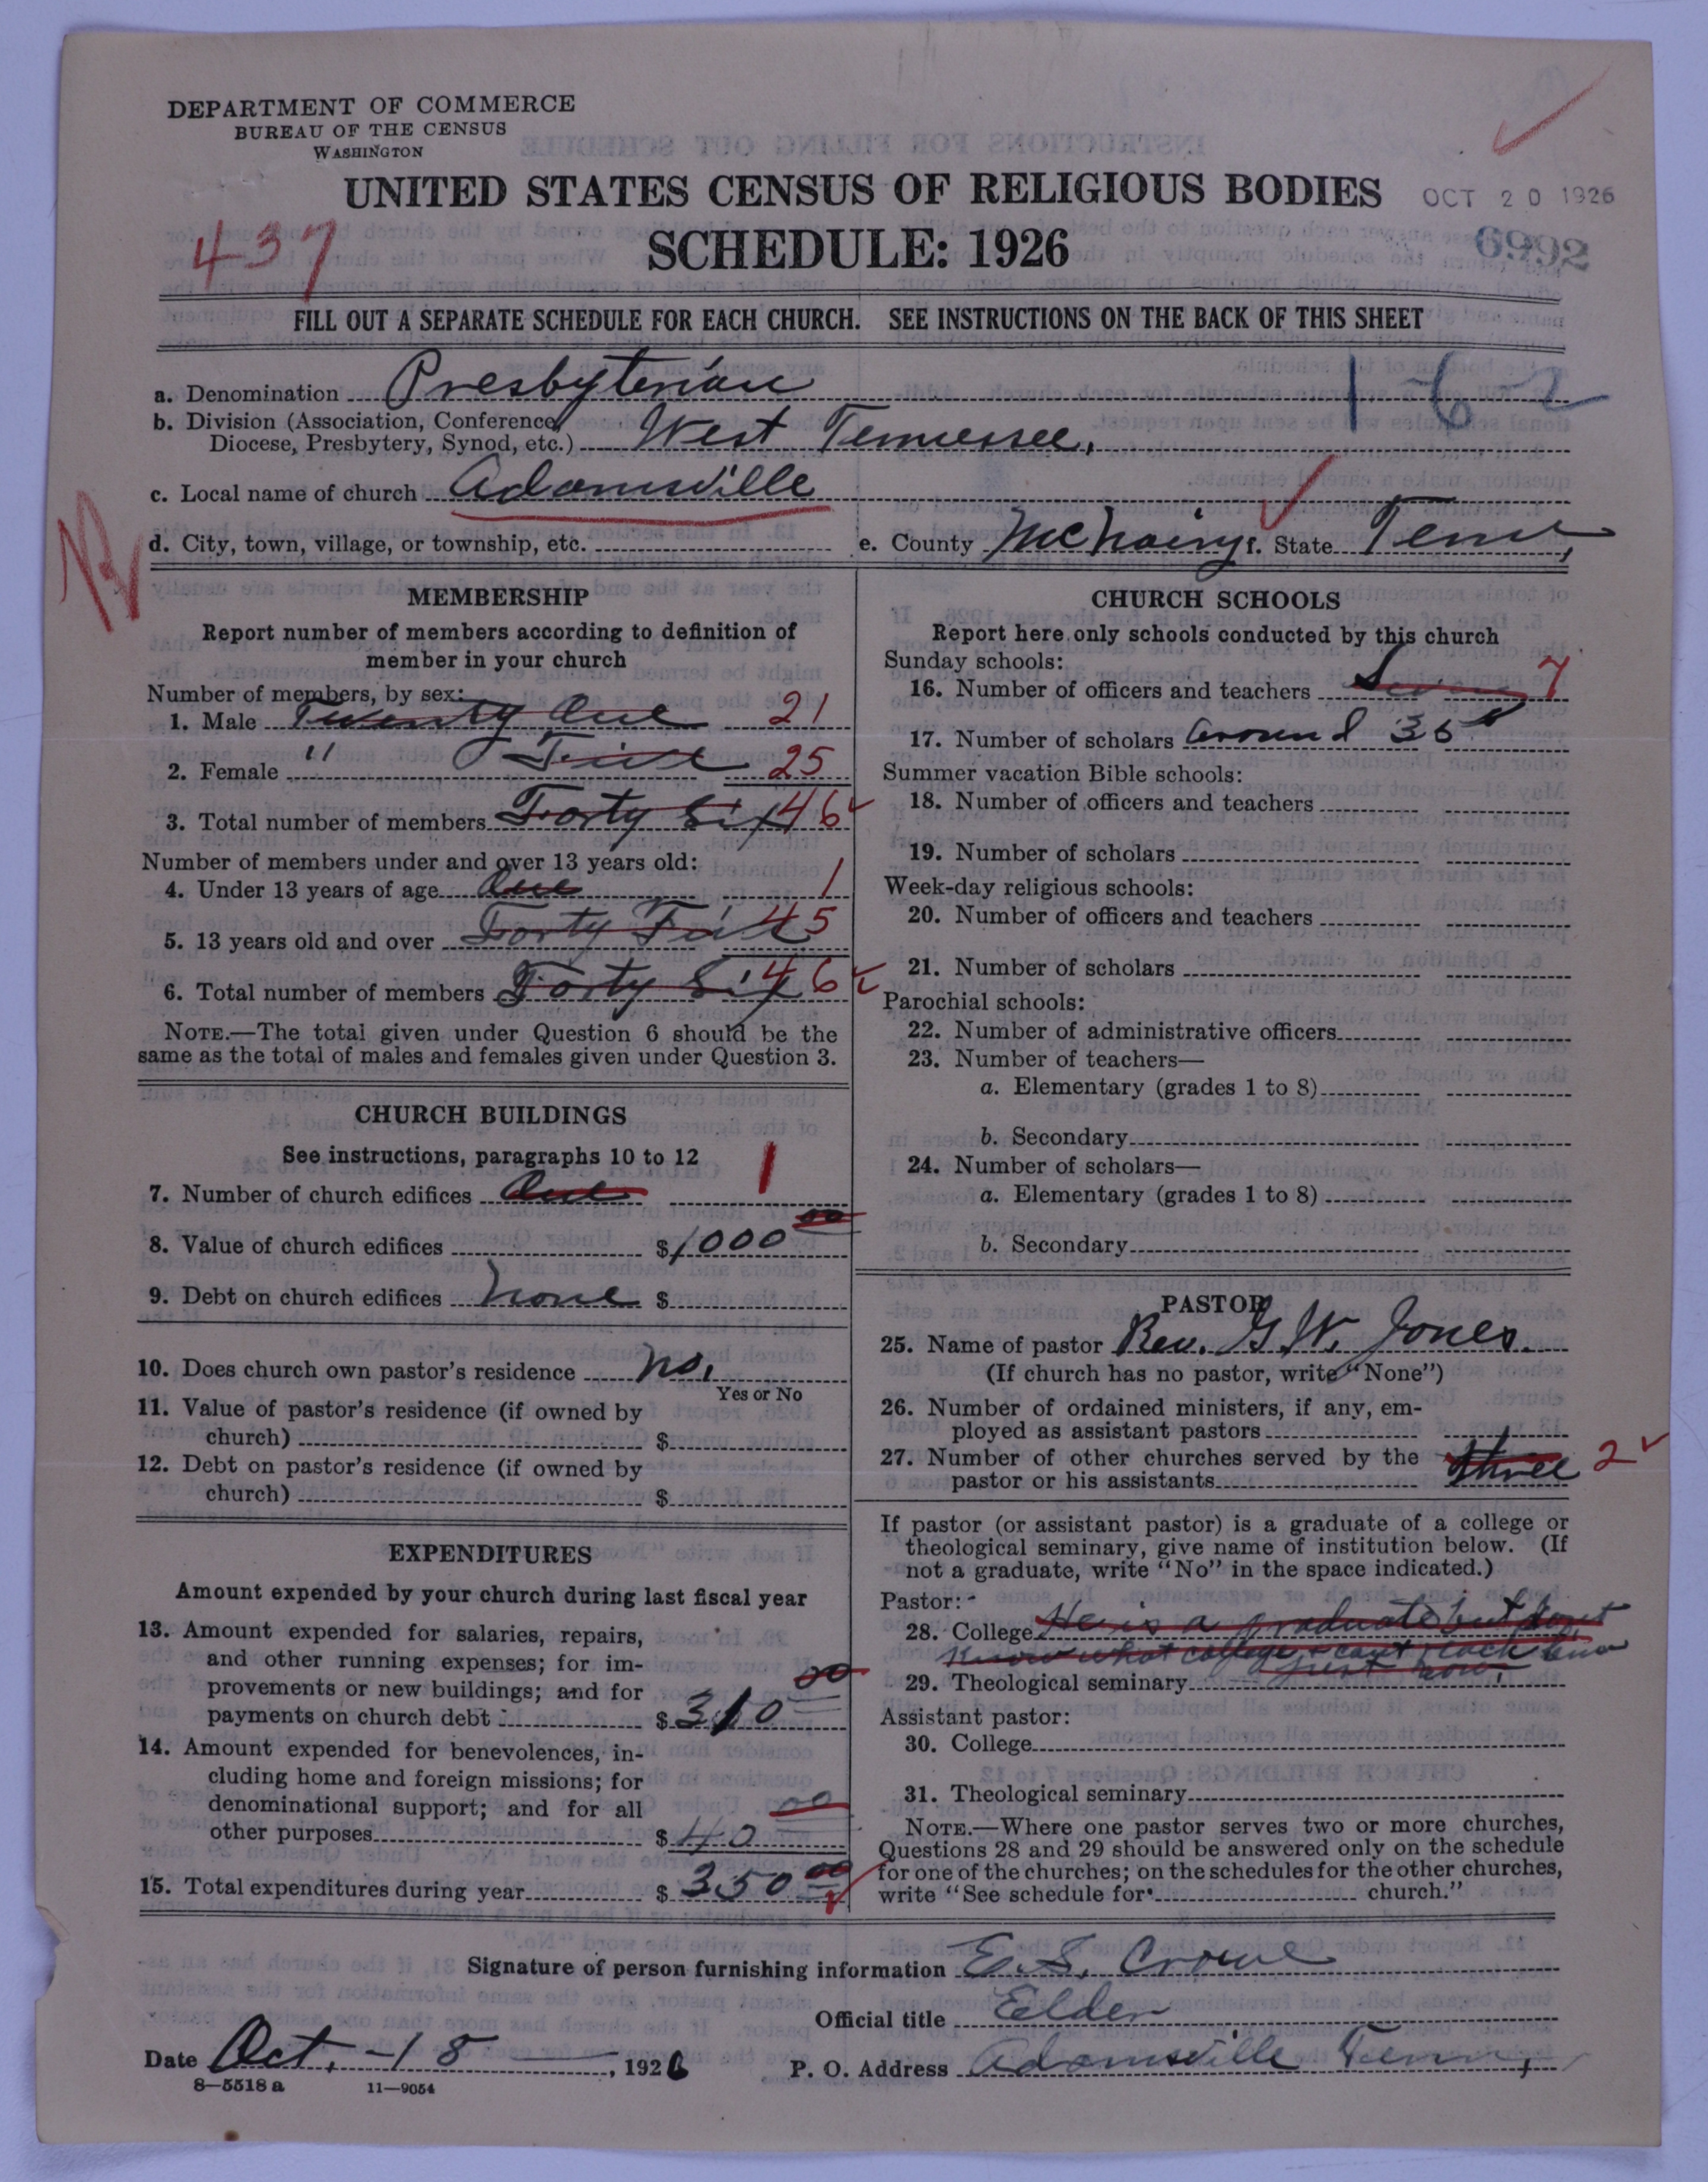 DEPARTMENT OF COMMERCE
BUREAU OF THE CENSUS
WASHINGTON
UNITED STATES CENSUS OF RELIGIOUS BODIES
OCT 20 1926
437
SCHEDULE: 1926
6992
FILL OUT A SEPARATE SCHEDULE FOR EACH CHURCH. SEE INSTRUCTIONS ON THE BACK OF THIS SHEET
1-62
a. Denomination Presbyterian
b. Division (Association, Conference,
Diocese, Presbytery, Synod, etc.) West Tennessee,
c. Local name of church Adamsville
d. City, town, village, or township, etc. e. County McNairy f. State Tenn,
MEMBERSHIP
Report number of members according to definition of
member in your church
Number of members, by sex:
1. Male Twenty One 21
2. Female " Five 25
3. Total number of members Forty Six 46
Number of members under and over 13 years old:
4. Under 13 years of age One 1
5. 13 years old and over Forty Five 45
6. Total number of members Forty Six 46
NOTE.—The total given under Question 6 should be the
same as the total of males and females given under Question 3.
CHURCH BUILDINGS
See instructions, paragraphs 10 to 12
7. Number of church edifices One 1
8. Value of church edifices $1000 00
9. Debt on church edifices None $
10. Does church own pastor's residence No.
Yes or No
11. Value of pastor's residence (if owned by
church) $
12. Debt on pastor's residence (if owned by
church) $
EXPENDITURES
Amount expended by your church during last fiscal year
13. Amount expended for salaries, repairs,
and other running expenses; for im-
provements or new buildings; and for
payments on church debt $310 00
14. Amount expended for benevolences, in-
cluding home and foreign missions; for
denominational support; and for all
other purposes $40 00
15. Total expenditures during year $350 00
CHURCH SCHOOLS
Report here only schools conducted by this church
Sunday schools:
16. Number of officers and teachers Seven 7
17. Number of scholars Around 35
Summer vacation Bible schools:
18. Number of officers and teachers
19. Number of scholars
Week-day religious schools:
20. Number of officers and teachers
21. Number of scholars
Parochial schools:
22. Number of administrative officers
23. Number of teachers—
a. Elementary (grades 1 to 8)
b. Secondary
24. Number of scholars—
a. Elementary (grades 1 to 8)
b. Secondary
PASTOR
25. Name of pastor Rev. G. W. Jones.
(If church has no pastor, write "None")
26. Number of ordained ministers, if any, em-
ployed as assistant pastors
27. Number of other churches served by the
pastor or his assistants three 2
If pastor (or assistant pastor) is a graduate of a college or
theological seminary, give name of institution below. (If
not a graduate, write "No" in the space indicated.)
Pastor:
28. College He is a graduate but dont
know what college & cant reach him
29. Theological seminary just now.
Assistant pastor:
30. College
31. Theological seminary
NOTE.—Where one pastor serves two or more churches,
Questions 28 and 29 should be answered only on the schedule
for one of the churches; on the schedules for the other churches,
write "See schedule for church."
Signature of person furnishing information E. S. Crowe
Official title Eelder
Date Oct. -18 , 1926 P. O. Address Adamsville Tenn,
8—5518 a 11—9054